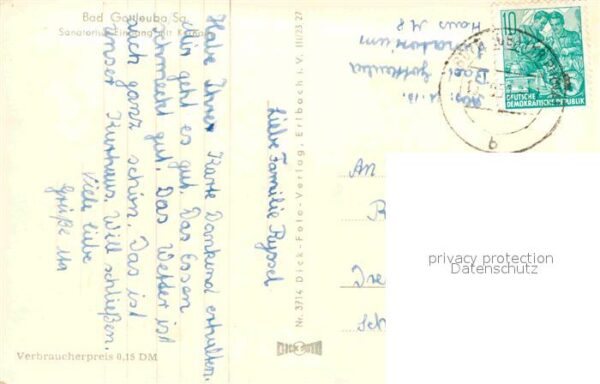 Bad Gottleuba Sa.
Sanatorium Eingang mit
Liebe Familie Ryssel
Habe Ihre Karte Dankend erhalten.
Mir geht es gut. Das Essen
schmeckt gut. Das Wetter ist
auch ganz schön. Das ist
unser Kurhaus. Will schließen.
Viele liebe
Grüße
Verbraucherpreis 0,15 DM
Nr. 3714 Dick-Foto-Verlag, Erlbach i. V. III/23 27
DICK FOTO
Abs.
Bad Gottleuba
Sanatorium
Haus
10
DEUTSCHE
DEMOKRATISCHE REPUBLIK
6
An
privacy protection
Datenschutz